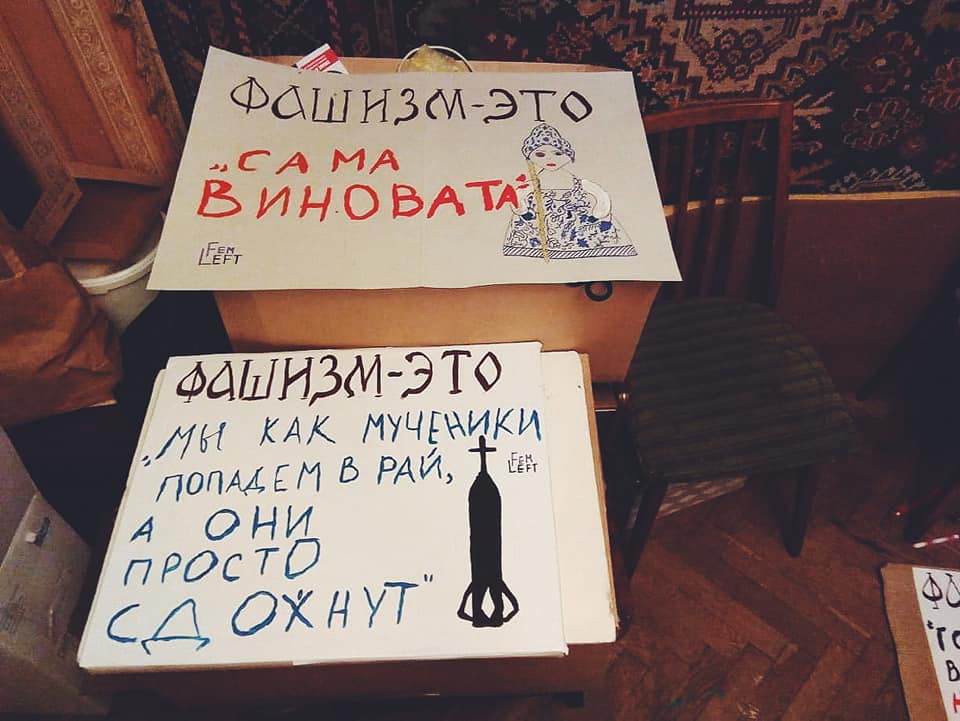 ФАШИЗМ-ЭТО
„САМА
ВИНОВАТА"
FEM
LEFT
ФАШИЗМ-ЭТО
„МЫ КАК МУЧЕНИКИ
ПОПАДЕМ В РАЙ,
А ОНИ
ПРОСТО
СДОХНУТ"
FEM
LEFT